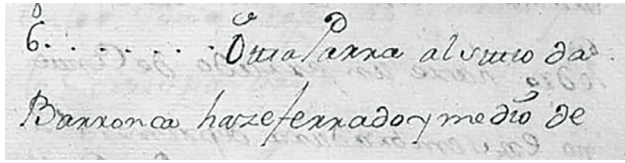 6.º . . . . . . Otra Parra al sitio da
Barronca haze ferrado y medio de